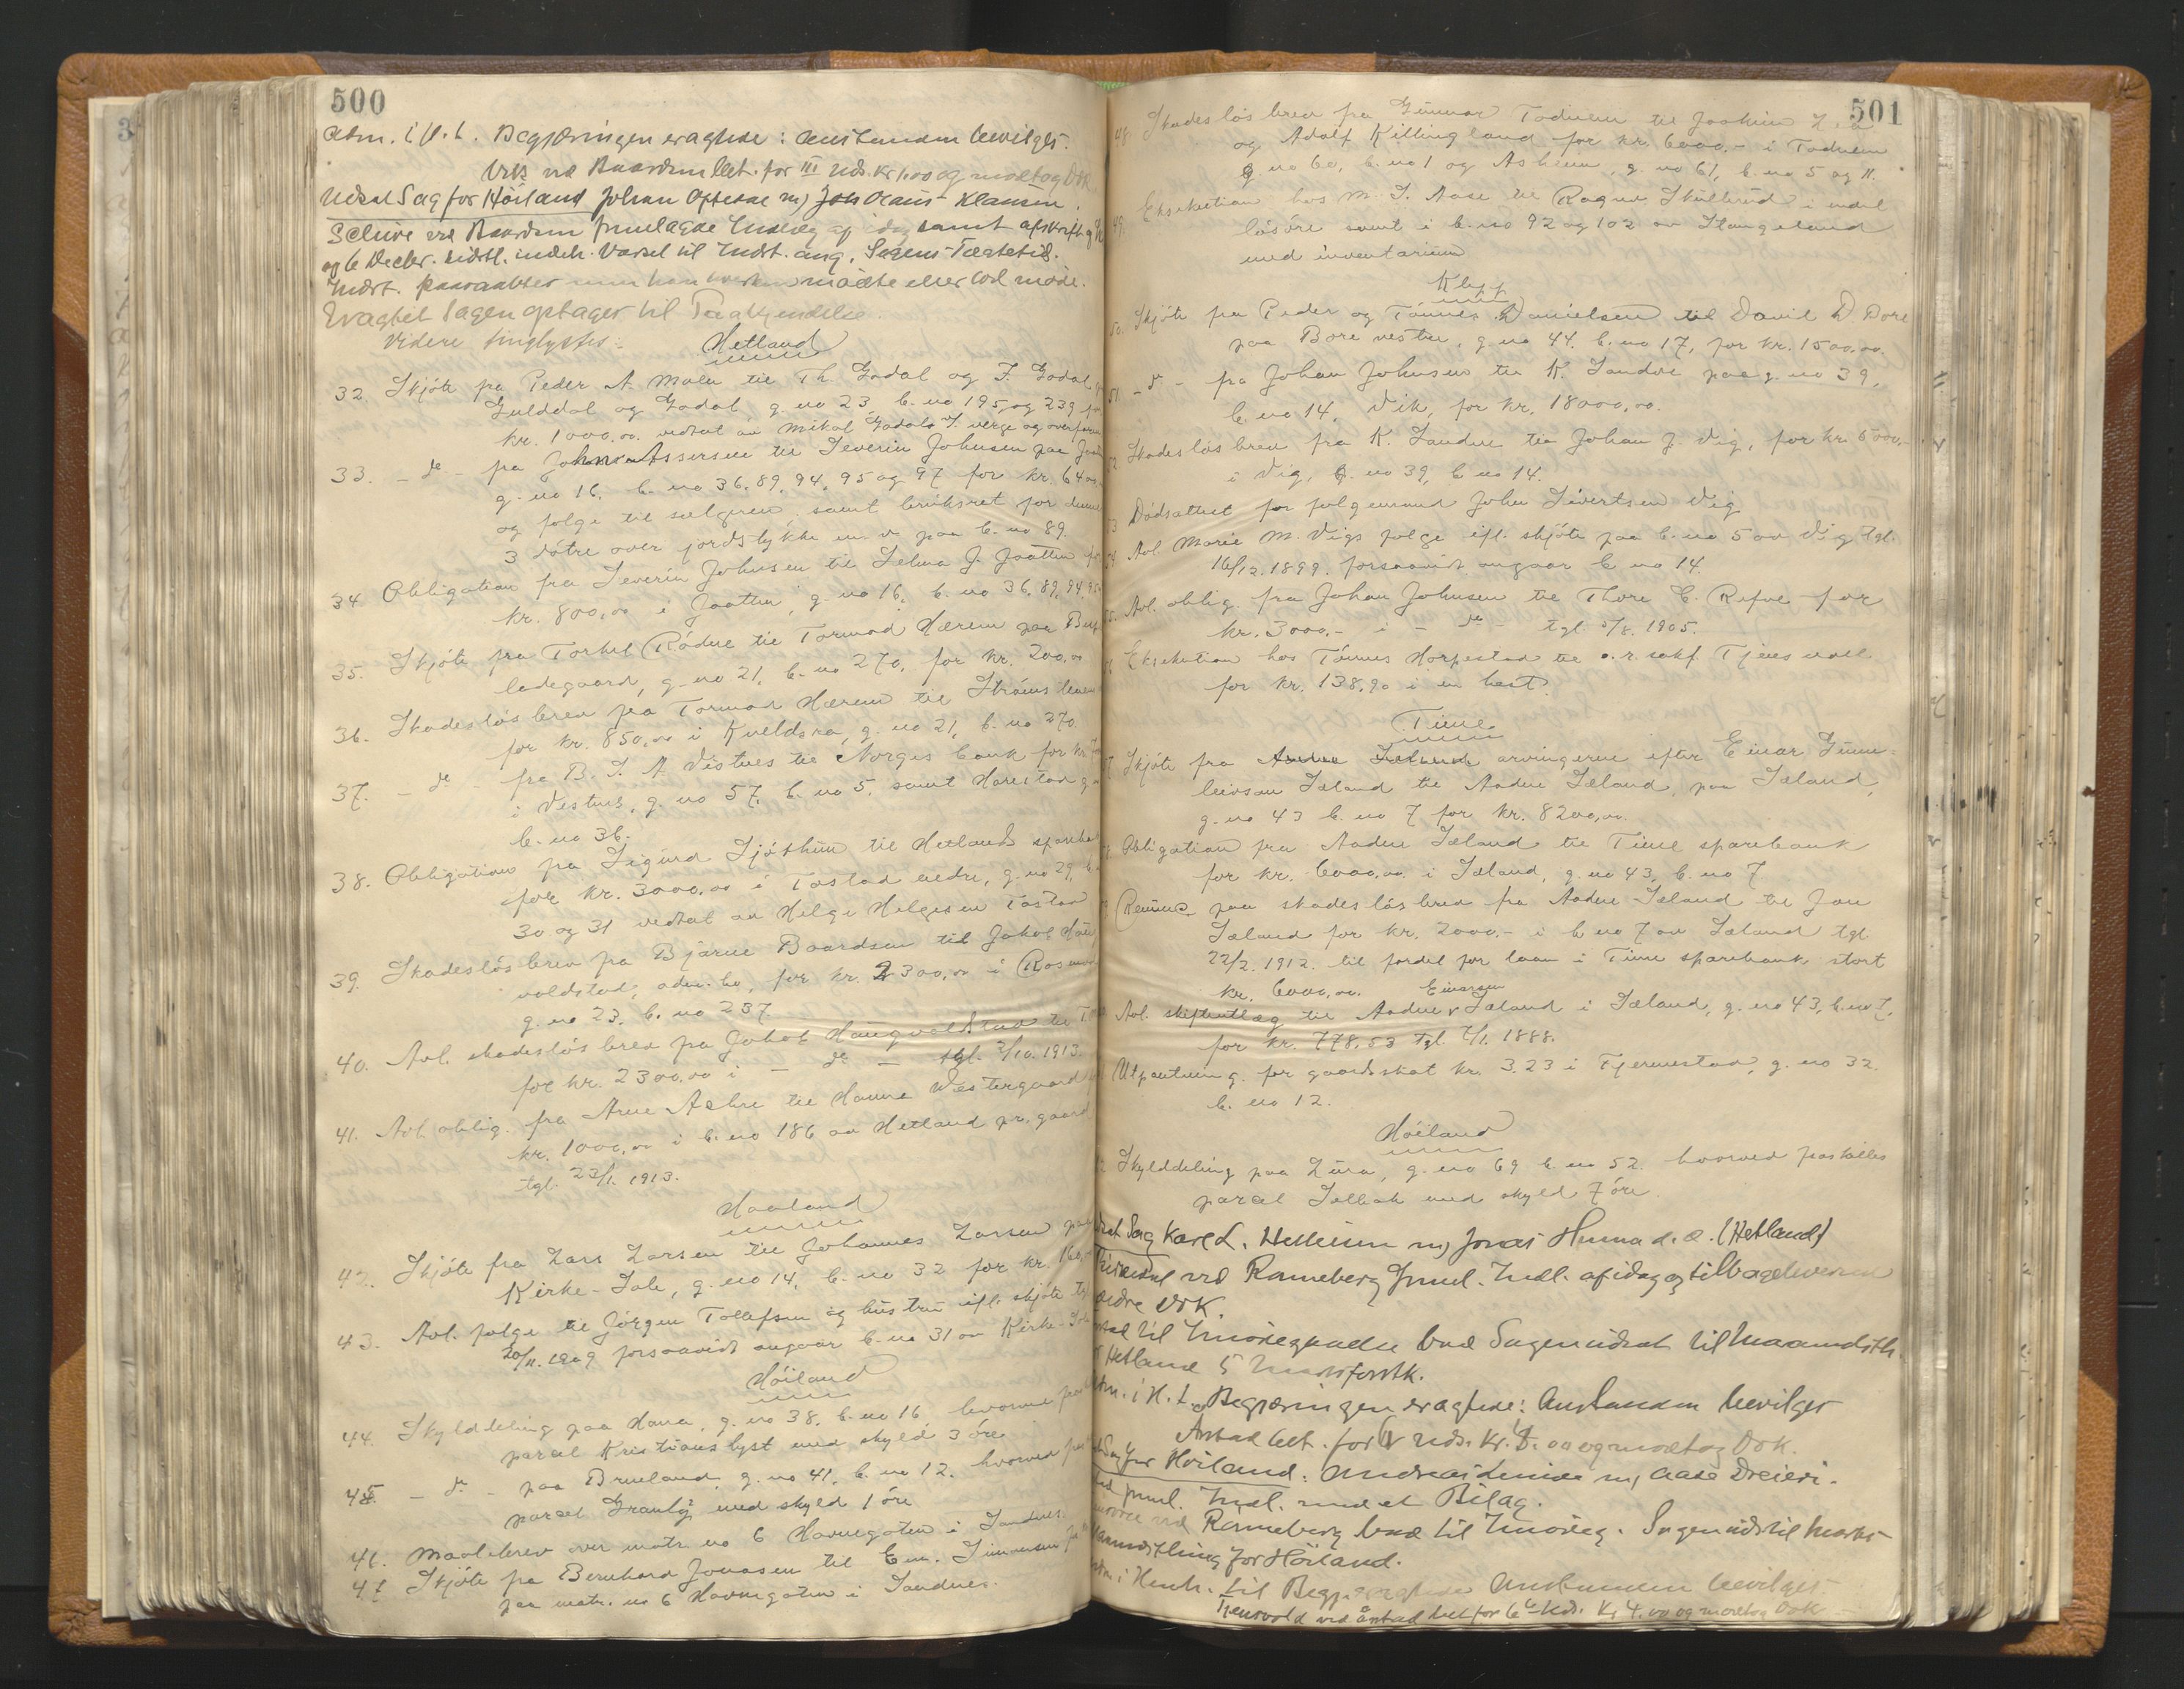 500
Adm. i H. t. Begjæringen eragtede: Anstanden bevilges.
ved Baardsen bet. for III Uds. Kr 1,00 og modtog Dok.
Udsat Sag for Höiland Johan Opstad m/ Claus Klausen.
ved Baardsen freml. Indlæg af idag samt afskrift
og 6 Decbr. sidstl. indeh. Varsel til Indst. ang. Sagens Foretagelse.
Indst. paaraabtes men han hverken mødte eller lod møde.
Eragtet Sagen optages til Paakjendelse.
Videre tinglystes:
Hetland
32. Skjöte fra Peder A. Molen til Th. Godal og J. Godal
Gulddal og Godal g. no 23, b. no 195 og 239 for
kr. 1000,00 vedtat av Mikal Godals verge og overform
33. - do - fra Assersen til Severin Johnsen paa Jaatten
g. no 16, b. no 36, 89, 94, 95 og 97 for kr. 6400,-
og folge til sælgeren samt bruksret for dennes
3 dötre over jordstykke m. v. paa b. no 89.
34. Obligation fra Severin Johnsen til Selma J. Jaatten for
kr. 800,00 i Jaatten, g. no 16, b. no 36, 89, 94, 95
35. Skjöte fra Torkel Rödne til Tormod Hærem paa
ladegaard, g. no 21, b. no 270, for kr. 200,00
36. Skadeslösbrev fra Tormod Hærem til Ströms
for kr. 850,00 i Kveldsro, g. no 21, b. no 270.
37. - do - fra B. S. A. Vistnes til Norges bank for kr.
i Vistnes, g. no 57, b. no 5, samt Harestad g.
b. no 36.
38. Obligation fra Sigurd Sjöthun til Hetlands spareba
for kr. 3000,00 i Tastad nedre, g. no 29, b.
30 og 31 vedtat av Helge Helgesen Tastad
39. Skadeslösbrev fra Bjarne Baardsen til Jakob
voldstad, adm. bo, for kr. 2300,00 i Rosen
g. no 23, b. no 237
40. Avl. skadeslösbrev fra Jakob Haugvoldstad til
for kr. 2300,00 i - do - tgl. 2/10. 1913.
41. Avl. oblig. fra Arne Aske til Hanna Westergaard
kr. 1000,00 i b. no 186 av Hetland pr. gaard
tgl. 23/1. 1913.
Haaland
42. Skjöte fra Lars Larsen til Johannes Larsen paa
Kirke-Sole, g. no 14, b. no 32 for kr. 160,00
43. Avl. folge til Jörgen Tollefsen og hustru ifl. skjöte
20/11. 1909 forsaavidt angaar b. no 31 av Kirke-Sole
Höiland
44. Skylddeling paa Hana, g. no 38, b. no 16, hvorved
parcel Kristianslyst med skyld 3 öre
45. - do - paa Brueland, g. no 41, b. no 12, hvorved
parcel Granly med skyld 1 öre
46. Maalebrev over matr. no 6 Havnegaten i Sandnes.
47 Skjöte fra Bernhard Jonasen til Em. Simonsen
paa matr. no 6 Havnegaten i Sandnes.
501
48. Skadeslösbrev fra Gunnar Todnem til Joakim
og Adolf Kitlingland for kr. 6000,- i Todnem
g. no 60, b. no 1 og Asheim, g. no 61, b. no 5 og 11.
49. Eksekution hos M. S. Aase til Ragna Skulbrud i endel
lösöre samt i b. no 92 og 102 av Stangeland
med inventarium
Klepp
50. Skjöte fra Peder og Tönnes Danielsen til David D Bore
paa Bore vestre, g. no 44, b. no 17, for kr. 1500,00.
51. - do - fra Johan Johnsen til K. Sandve paa g. no 39,
b. no 14, Vik, for kr. 18000,00.
Skadeslösbrev fra K. Sandve til Johan J. Vig, for kr. 5000,-
i Vig, g. no 39, b. no 14.
Dödsattest for folgemand John Sivertsen Vig
Avl. Marie M. Vigs folge ifl. skjöte paa b. no 5 av Vig tgl.
16/12. 1899. forsaavidt angaar b. no 14.
Avl. oblig. fra Johan Johnsen til Thore E. Refve for
kr. 3000,- i - do - tgl. 1/8. 1905.
Eksekution hos Tönnes Horpestad til o. r. sakf. Tjensvoll
for kr. 138,90 i en hest.
Time
Skjöte fra Andre Iæland arvingerne efter Einar Gunn-
leivsen Iæland til Andre Iæland, paa Iæland,
g. no 43 b. no 7 for kr. 8200,00.
Obligation fra Andre Iæland til Time sparebank
for kr. 6000,00. i Iæland, g. no 43, b. no 7
Renunc. paa skadeslösbrev fra Andre Iæland til Jon
Iæland for kr. 2000,- i b. no 7 av Iæland tgl
22/2. 1912. til fordel for laan i Time sparebank stort
kr. 6000,00.
Avl. skifteutlæg til Andre Einarsen Iæland i Iæland, g. no 43, b. no 7,
for kr. 778,53 tgl. 7/1. 1888.
Utpantning for gaardskat kr. 3.23 i Fjermestad, g. no 32.
b. no 12.
Höiland
Skylddeling paa Lura, g. no 69 b. no 52. hvorved fraskilles
parcel Solbak med skyld 7 öre.
Sag Karl L. Helliesen m/ Jonas Hinna d. æ. (Hetland)
ved Ronneberg freml. Indl. af idag og tilbageleverede
Dok.
til Imødegaaelse bad Sagen udsat til Maanedsth.
Hetland
i H. t. Begjæringen eragtede: Anstanden bevilges
Anstad bet. for V Uds. Kr. og modtog Dok.
Sag for Höiland: Andreas m/ Aase Dreieri.
freml. Indl. med et Bilag.
ved Ronneberg bad til Imødeg. Sagen uds til Marts
maanedsthing for Höiland.
i Henh. til Begj. eragtede Anstanden bevilges
Tjensvold ved Anstad bet for 6te Uds. Kr 4.00 og modtog Dok